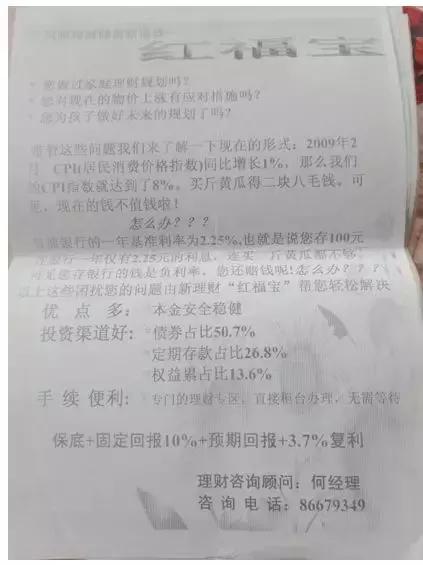 红福宝
* 您做过家庭理财规划吗?
* 您对现在的物价上涨有应对措施吗?
* 您为孩子做好未来的规划了吗?
带着这些问题我们来了解一下现在的形式: 2009年2
月 CPI(居民消费价格指数)同比增长1%, 那么我们
的CPI指数就达到了8%。买斤黄瓜得二块八毛钱。可
见, 现在的钱不值钱啦!
怎么办???
目前银行的一年基准利率为2.25%,也就是说您存100元
在银行一年仅有2.25元的利息, 连买一斤黄瓜都不够!
可见您存银行的钱是负利率, 您还赔钱呢!怎么办???
以上这些困扰您的问题由新理财“红福宝”帮您轻松解决
优 点 多: 本金安全稳健
投资渠道好: 债券占比50.7%
定期存款占比26.8%
权益累占比13.6%
手 续 便利: 专门的理财专区, 直接柜台办理, 无需等待
保底+固定回报10%+预期回报+3.7%复利
理财咨询顾问: 何经理
咨 询 电 话: 86679349